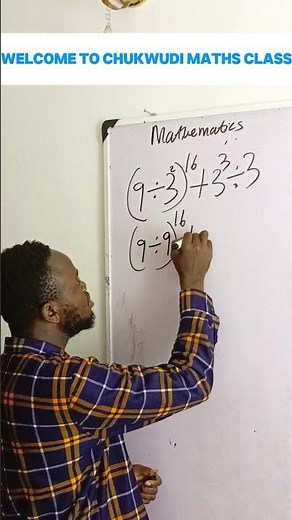 WELCOME TO CHUKWUDI MATHS CLASS
Mathematics
(9÷3²)¹⁶+3³÷3
(9÷9)¹⁶